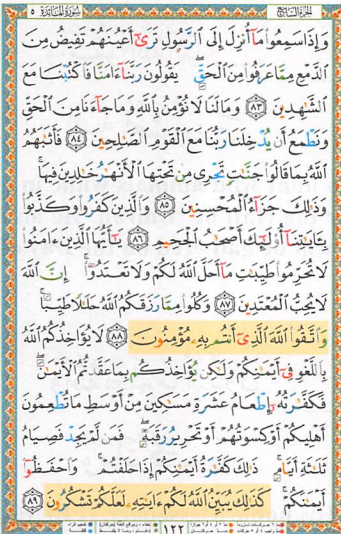 الجزء السابع
سورة المائدة ٥
وَإِذَا سَمِعُوا۟ مَآ أُنزِلَ إِلَى ٱلرَّسُولِ تَرَىٰٓ أَعْيُنَهُمْ تَفِيضُ مِنَ
ٱلدَّمْعِ مِمَّا عَرَفُوا۟ مِنَ ٱلْحَقِّ ۖ يَقُولُونَ رَبَّنَآ ءَامَنَّا فَٱكْتُبْنَا مَعَ
ٱلشَّٰهِدِينَ ٨٣ وَمَا لَنَا لَا نُؤْمِنُ بِٱللَّهِ وَمَا جَآءَنَا مِنَ ٱلْحَقِّ
وَنَطْمَعُ أَن يُدْخِلَنَا رَبُّنَا مَعَ ٱلْقَوْمِ ٱلصَّٰلِحِينَ ٨٤ فَأَثَٰبَهُمُ
ٱللَّهُ بِمَا قَالُوا۟ جَنَّٰتٍ تَجْرِى مِن تَحْتِهَا ٱلْأَنْهَٰرُ خَٰلِدِينَ فِيهَا ۚ
وَذَٰلِكَ جَزَآءُ ٱلْمُحْسِنِينَ ٨٥ وَٱلَّذِينَ كَفَرُوا۟ وَكَذَّبُوا۟
بِـَٔايَٰتِنَآ أُو۟لَٰٓئِكَ أَصْحَٰبُ ٱلْجَحِيمِ ٨٦ يَٰٓأَيُّهَا ٱلَّذِينَ ءَامَنُوا۟
لَا تُحَرِّمُوا۟ طَيِّبَٰتِ مَآ أَحَلَّ ٱللَّهُ لَكُمْ وَلَا تَعْتَدُوٓا۟ ۚ إِنَّ ٱللَّهَ
لَا يُحِبُّ ٱلْمُعْتَدِينَ ٨٧ وَكُلُوا۟ مِمَّا رَزَقَكُمُ ٱللَّهُ حَلَٰلًا طَيِّبًا ۚ
وَٱتَّقُوا۟ ٱللَّهَ ٱلَّذِىٓ أَنتُم بِهِۦ مُؤْمِنُونَ ٨٨ لَا يُؤَاخِذُكُمُ ٱللَّهُ
بِٱللَّغْوِ فِىٓ أَيْمَٰنِكُمْ وَلَٰكِن يُؤَاخِذُكُم بِمَا عَقَّدتُّمُ ٱلْأَيْمَٰنَ ۖ
فَكَفَّٰرَتُهُۥٓ إِطْعَامُ عَشَرَةِ مَسَٰكِينَ مِنْ أَوْسَطِ مَا تُطْعِمُونَ
أَهْلِيكُمْ أَوْ كِسْوَتُهُمْ أَوْ تَحْرِيرُ رَقَبَةٍ ۖ فَمَن لَّمْ يَجِدْ فَصِيَامُ
ثَلَٰثَةِ أَيَّامٍ ۚ ذَٰلِكَ كَفَّٰرَةُ أَيْمَٰنِكُمْ إِذَا حَلَفْتُمْ ۚ وَٱحْفَظُوٓا۟
أَيْمَٰنَكُمْ ۚ كَذَٰلِكَ يُبَيِّنُ ٱللَّهُ لَكُمْ ءَايَٰتِهِۦ لَعَلَّكُمْ تَشْكُرُونَ ٨٩
١٢٢